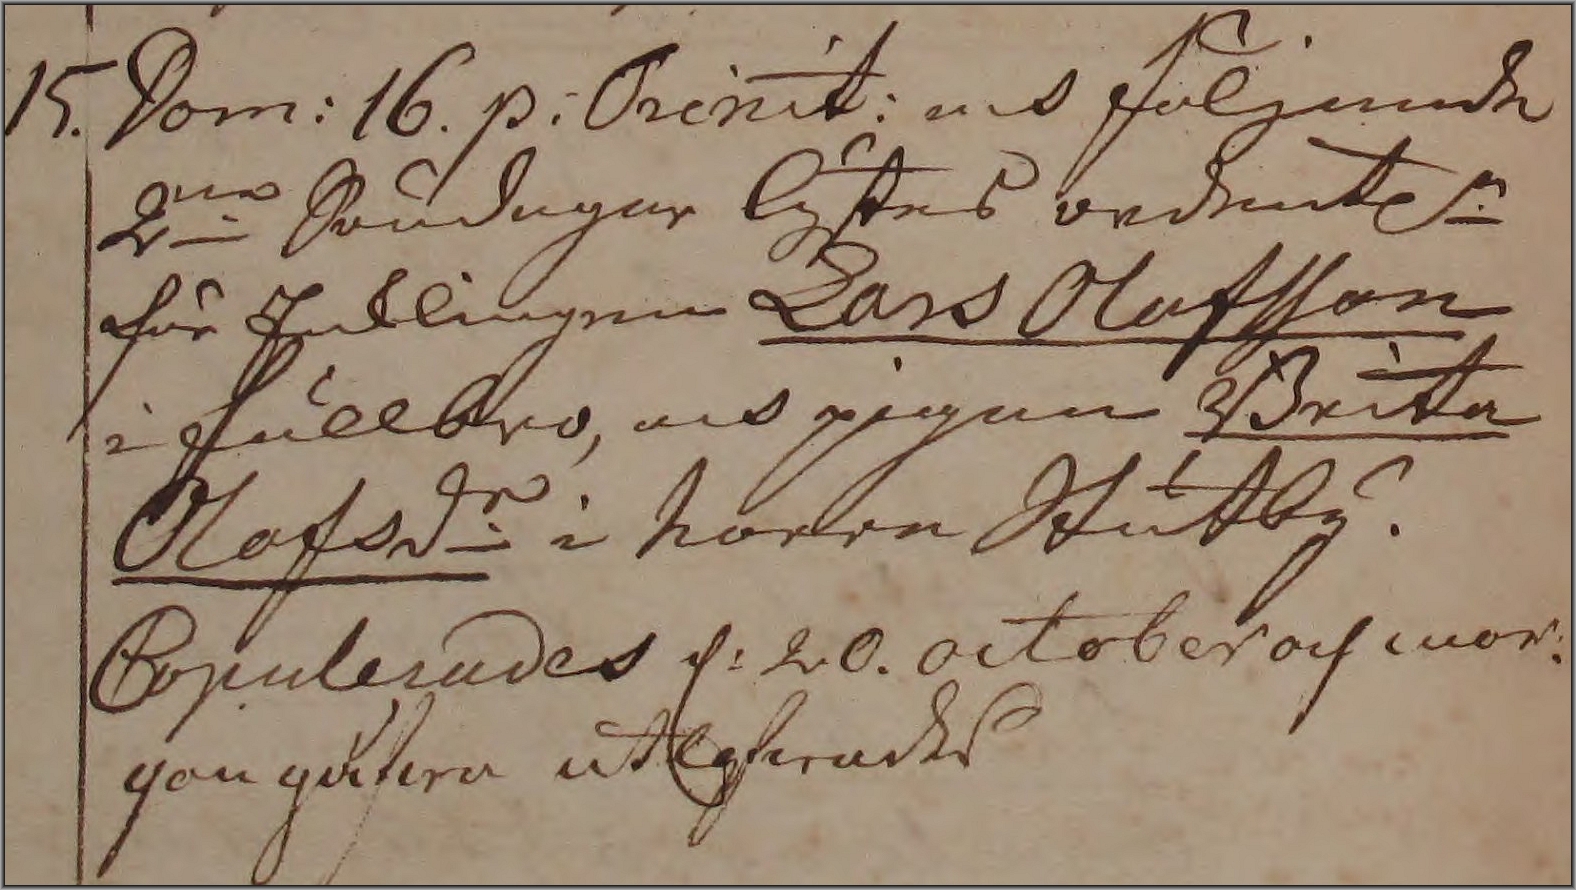 15. Dom: 16. p: Trinit: ock följande
2ne Söndagar lystes ordentel:n
för Ynklingen Lars Olafsson
i Fullbro, ock pigan Brita
Olafsdr: i norra Stutby.
Copulerades d: 20. october och mor:
gongåfvan utlofvades